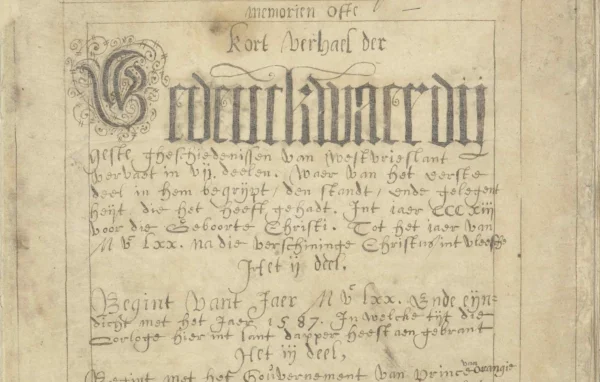 Memorien Ofte
Kort Verhael der
Gedenckwaerdij
geste Gheschiedenissen van Westvrieslant
vervaet in vij. deelen. Waer van het eerste
deel in hem begrijpt / den standt / ende gelegent
heijt die het heeft gehadt. Int iaer CCCXIII
voor die Geboorte Christi. Tot het iaer van
M Vc LXX. na die verschininge Christus int vleesche
Het ij deel.
Begint vant Jaer M Vc LXX. Ende eijn-
dicht met het Jaer 1587. In welcke tijt die
Oorloge hier int lant dapper heeft aen gebrant
Het iij deel,
Begint met het Gouvernement van Prince van Orangie